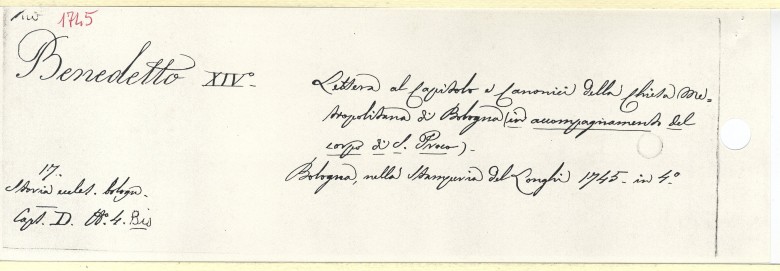 1745
Benedetto XIV°-
Lettera al Capitolo e Canonici della Chiesa Me=
tropolitana di Bologna (in accompagnamento del
corpo di S. Proco)-
Bologna, nella Stamperia del Longhi 1745- in 4°
17.
Storia eccles. bologn.
Capt. D. N°. 4. Bis